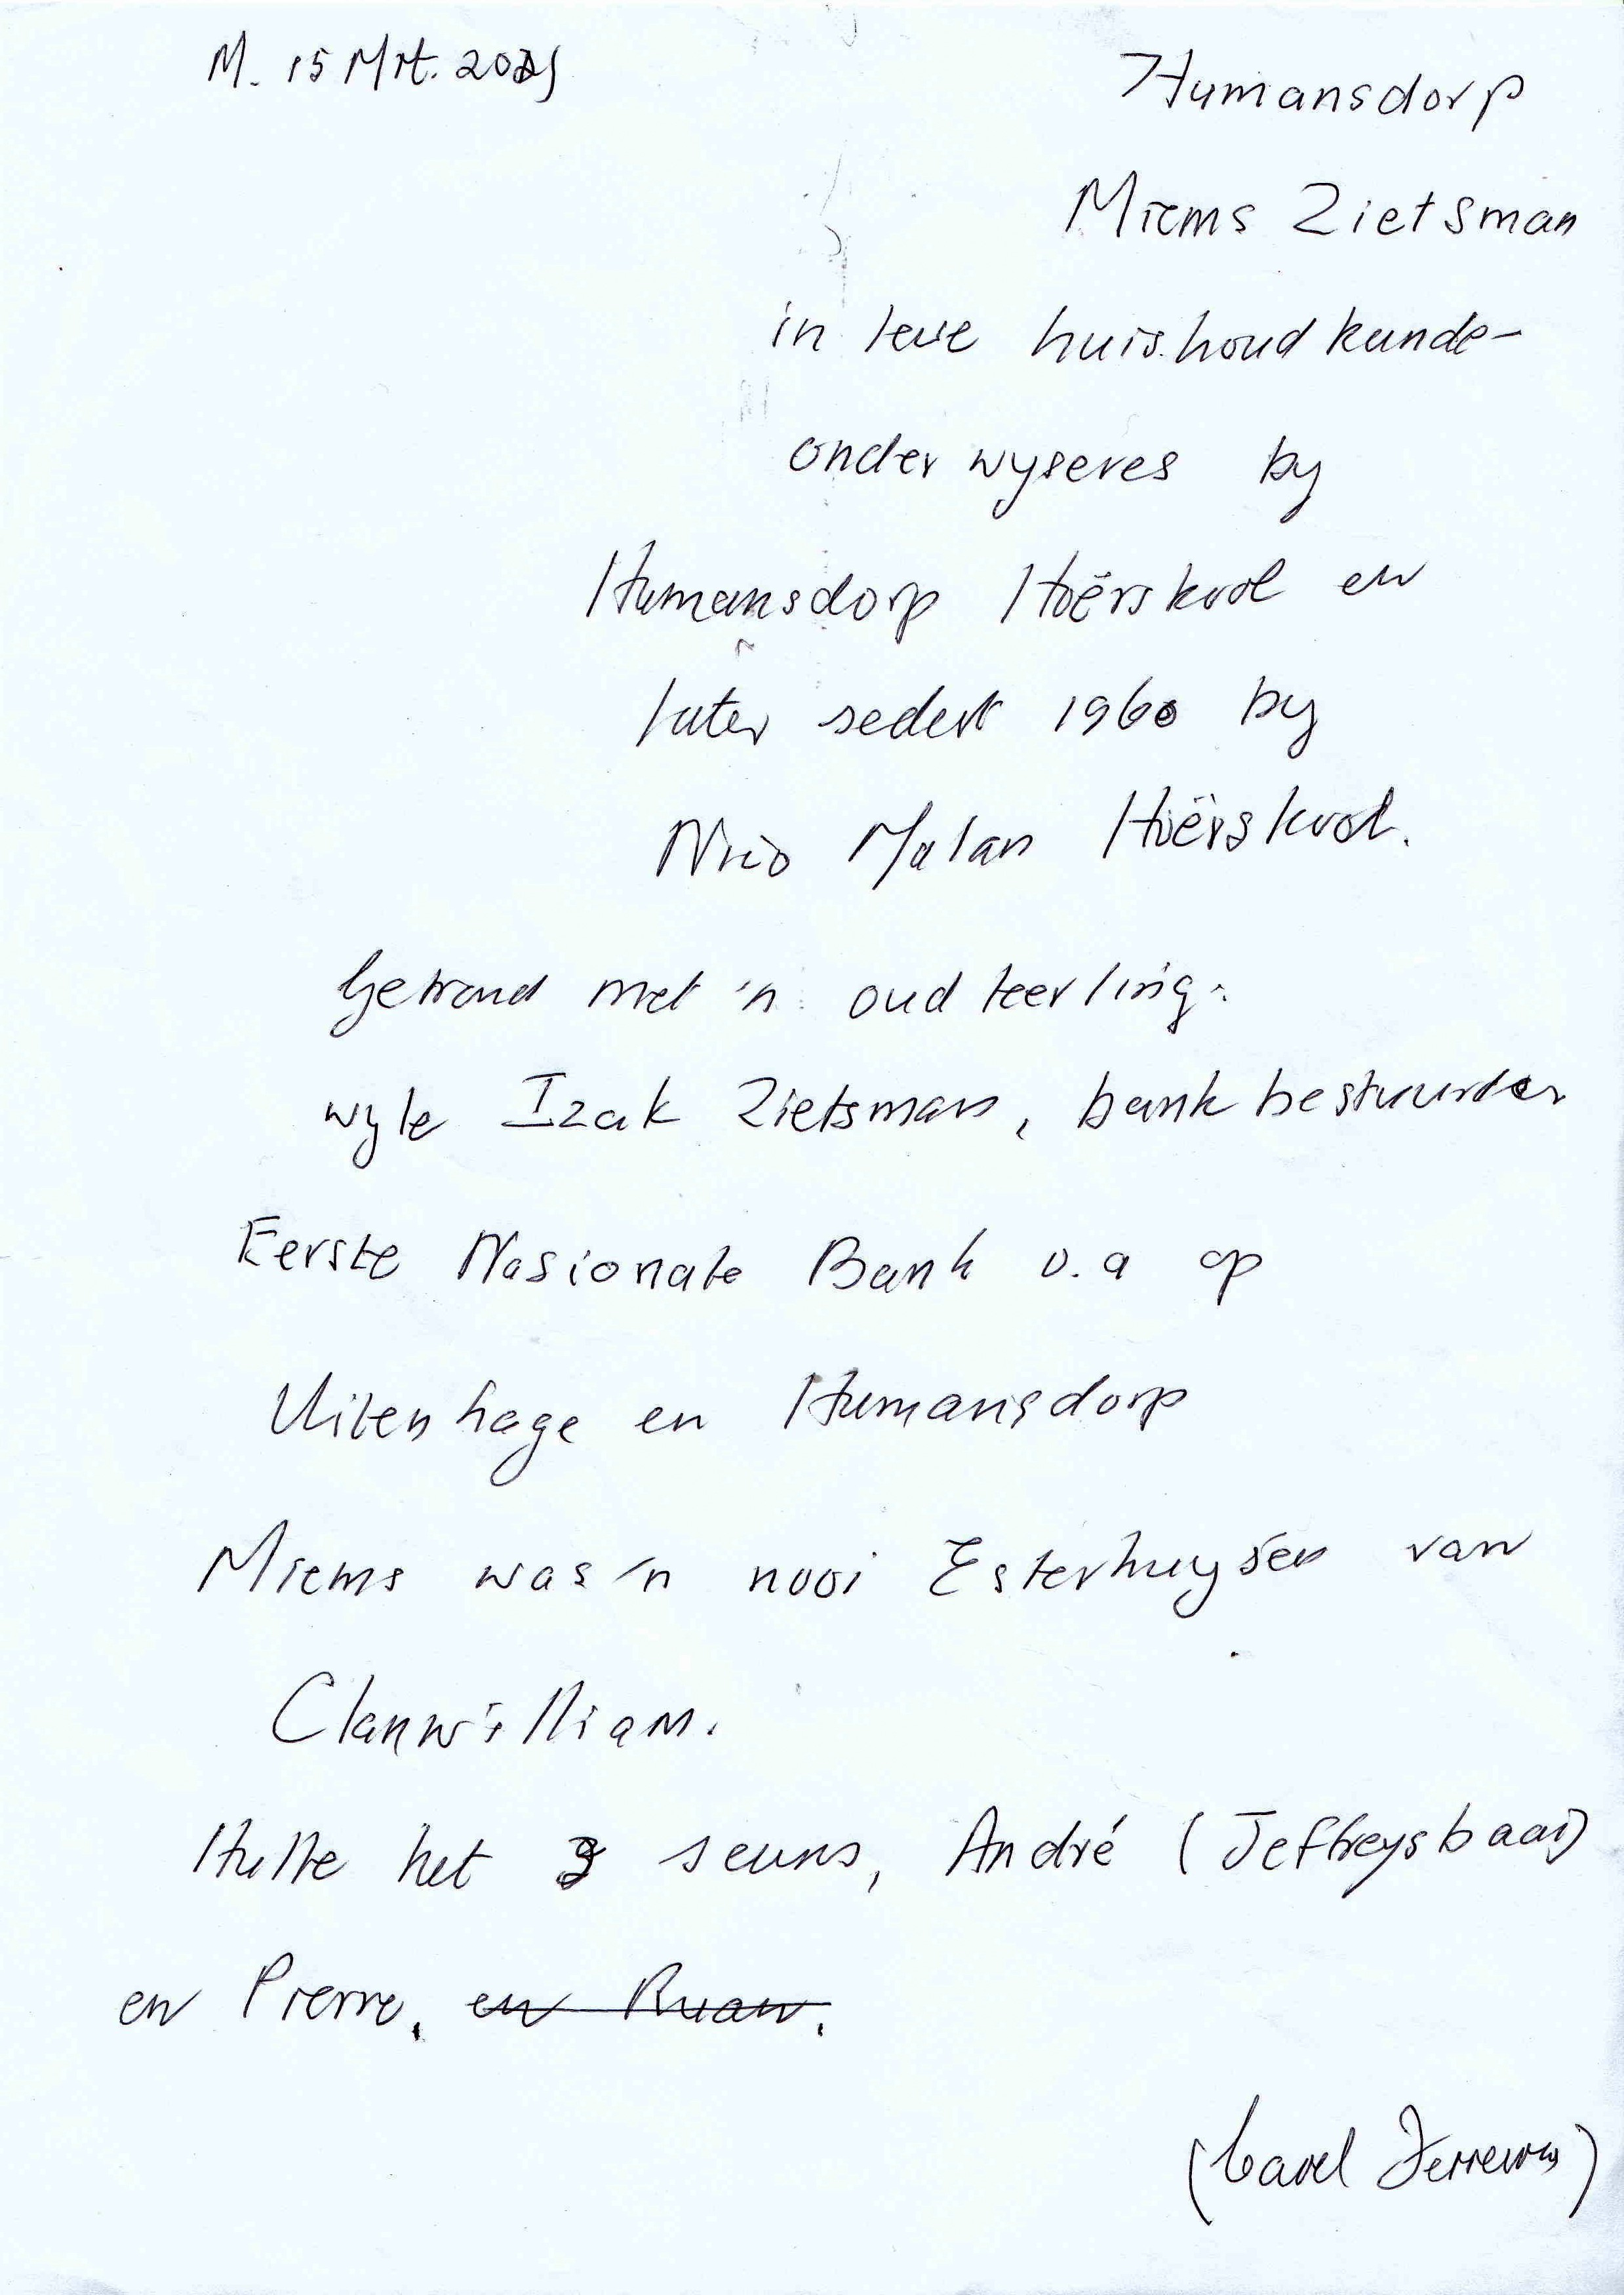 M. 15 Mrt.
Humansdorp
Miems Zietsman
in lewe huishoudkunde-
onderwyseres by
Humansdorp Hoërskool en
later sedert 1960 by
Nico Malan Hoërskool.
Getroud met 'n oud leerling:
wyle Izak Zietsman, bankbestuurder
Eerste Nasionale Bank o.a op
Uitenhage en Humansdorp
Miems was 'n nooi Esterhuysen van
Clanwilliam.
Hulle het seuns, André (Jeffreysbaai)
en Pierre. en Ruan.
(Carel